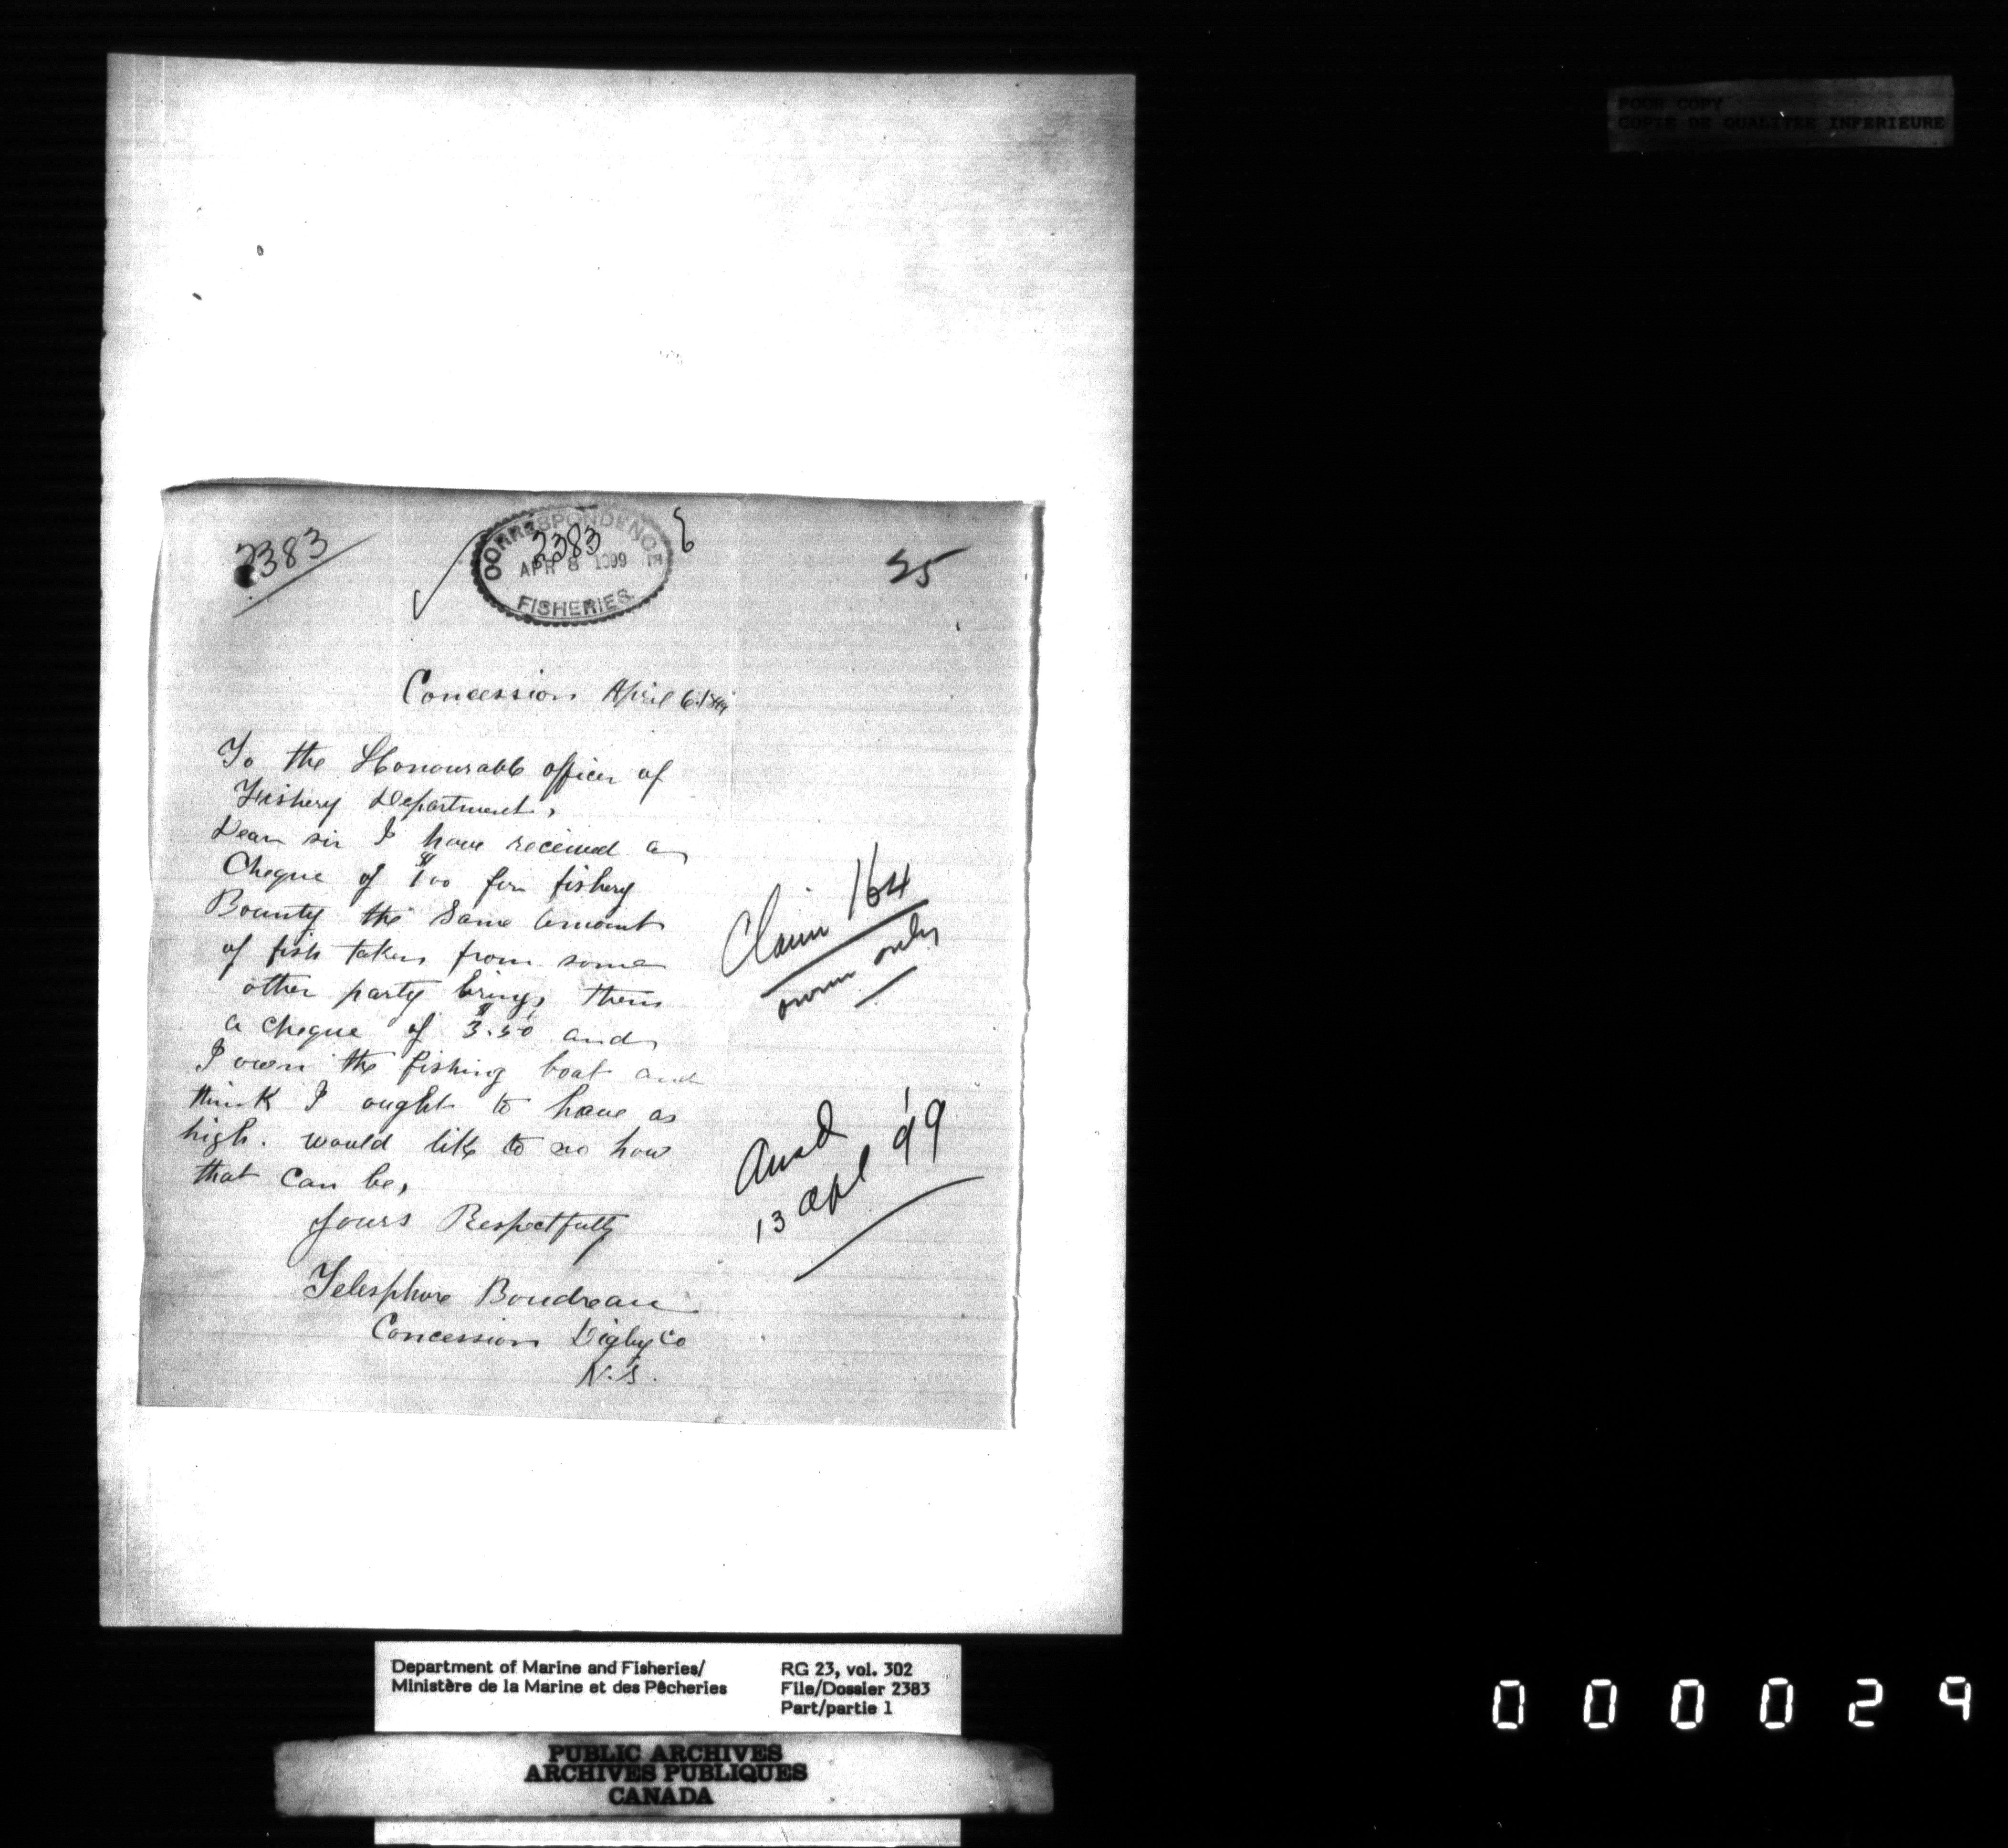 POOR COPY
COPIE DE QUALITEE INFERIEURE
2383
CORRESPONDENCE
2383
APR 8 1899
FISHERIES.
25
Concession April 6, 1899
To the Honourable officer of
Fishery Department,
Dear sir I have received a
Cheque of $1.00 for fishery
Bounty the same amount
of fish taken from some
other party brings them
a cheque of $3.50 and
I own the fishing boat and
think I ought to have as
high. would like to no how
that can be,
Yours Respectfully
Telesphore Boudreau
Concession Digby Co
N.S.
Claim 164
owner only
Ansd
13 Apl '99
Department of Marine and Fisheries/
Ministère de la Marine et des Pêcheries
RG 23, vol. 302
File/Dossier 2383
Part/partie 1
PUBLIC ARCHIVES
ARCHIVES PUBLIQUES
CANADA
000029